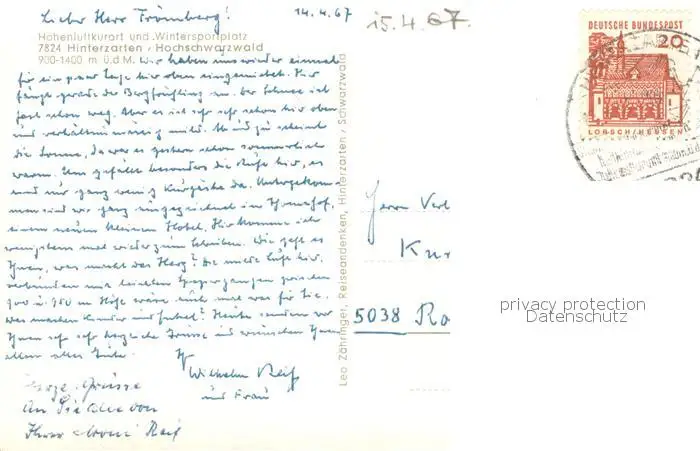 Lieber Herr Frömberg! 14.4.67
15.4.67.
Höhenluftkurort und Wintersportplatz
7824 Hinterzarten / Hochschwarzwald
900-1400 m ü.d.M. Wir haben uns wieder einmal
für ein paar Tage hier oben eingenistet. Hier
fängt gerade der Bergfrühling an. Der Schnee ist
fast schon weg. Aber es ist sehr sehr schön hier oben
und verhältnismässig mild. Ab und zu scheint
die Sonne, da war es gestern schon sommerlich
warm. Uns gefällt besonders die Ruhe hier, es
sind nur ganz wenig Kurgäste da. Untergekom-
men sind wir ganz ausgezeichnet im
einem neuen kleinen Hotel. Hier komme ich
wenigstens mal wieder zum Schreiben. Wie geht es
Ihnen, was macht das Herz? Die milde Luft hier,
verbunden mit leichten Spaziergängen zwischen
900 u. 950 m Höhe wäre auch mal was für Sie.
Was machen Kinder und Enkel? Heute senden wir
Ihnen sehr sehr herzliche Grüsse und wünschen Ihnen
allen alles Gute. Ihr
Wilhelm Reif
und Frau
Herzl. Grüsse
an Sie alle von
Ihrer Reif
Leo Zähringer, Reiseandenken, Hinterzarten / Schwarzwald
DEUTSCHE BUNDESPOST
20
LORSCH/HESSEN
Herrn
Kur
5038 Ro
privacy protection
Datenschutz